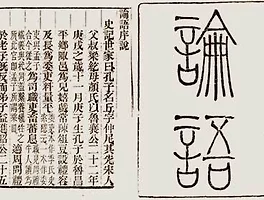 論語
論語序說
史記世家曰孔子名丘字仲尼其先宋人
父叔梁紇母顏氏以魯襄公二十二年
庚戌之歲十一月庚子生孔子於魯昌
平鄉陬邑為兒嬉戲常陳俎豆設禮容
及長為委吏料量平
為司職吏畜蕃息
適周問禮
於老子既反而弟子益進昭公二十五